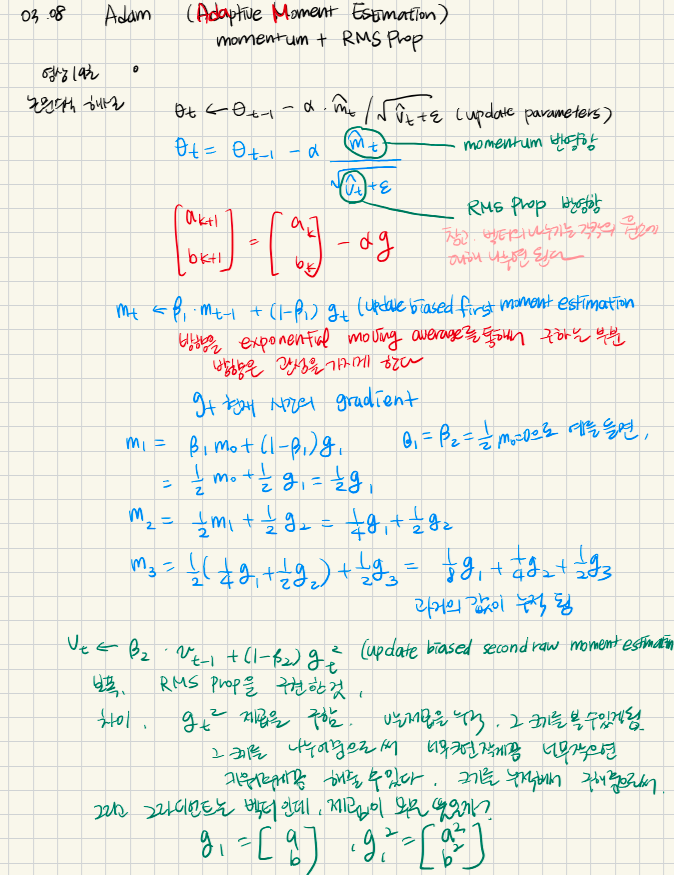 03.08 Adam (Adaptive Moment Estimation)
momentum + RMS Prop
θt ← θt-1 - α · m̂t / √v̂t + ε (update parameters)
θt = θt-1 - α m̂t / √v̂t + ε
momentum 반영함
RMS Prop 반영함
[ak+1 bk+1] = [ak bk] - αg
참고. 벡터의 나누기는 각각의 원소에
대해 나누면 된다
mt ← β1 · mt-1 + (1-β1) gt (update biased first moment estimation
방향을 exponential moving average를 통해서 구하는 부분
방향은 관성을 가지게 한다
gt 현재 시간의 gradient
m1 = β1 m0 + (1-β1) g1 β1 = β2 = 1/2 m0=0으로 예를 들면,
= 1/2 m0 + 1/2 g1 = 1/2 g1
m2 = 1/2 m1 + 1/2 g2 = 1/4 g1 + 1/2 g2
m3 = 1/2 ( 1/4 g1 + 1/2 g2 ) + 1/2 g3 = 1/8 g1 + 1/4 g2 + 1/2 g3
과거의 값이 누적 됨
Vt ← β2 · vt-1 + (1-β2) gt² (update biased second raw moment estimation
보폭. RMS Prop을 구현한것,
차이. gt² 제곱을 구함. 제곱을 누적. 그 크기를 볼 수 있게됨
그 크기를 나누어줌으로써 너무크면 작게끔 너무작으면
해줄 수 있다. 크기를 누적해서 구해줌으로써.
그리고 그라디언트는 벡터인데, 제곱이
g1 = [a b], g1² = [a² b²]